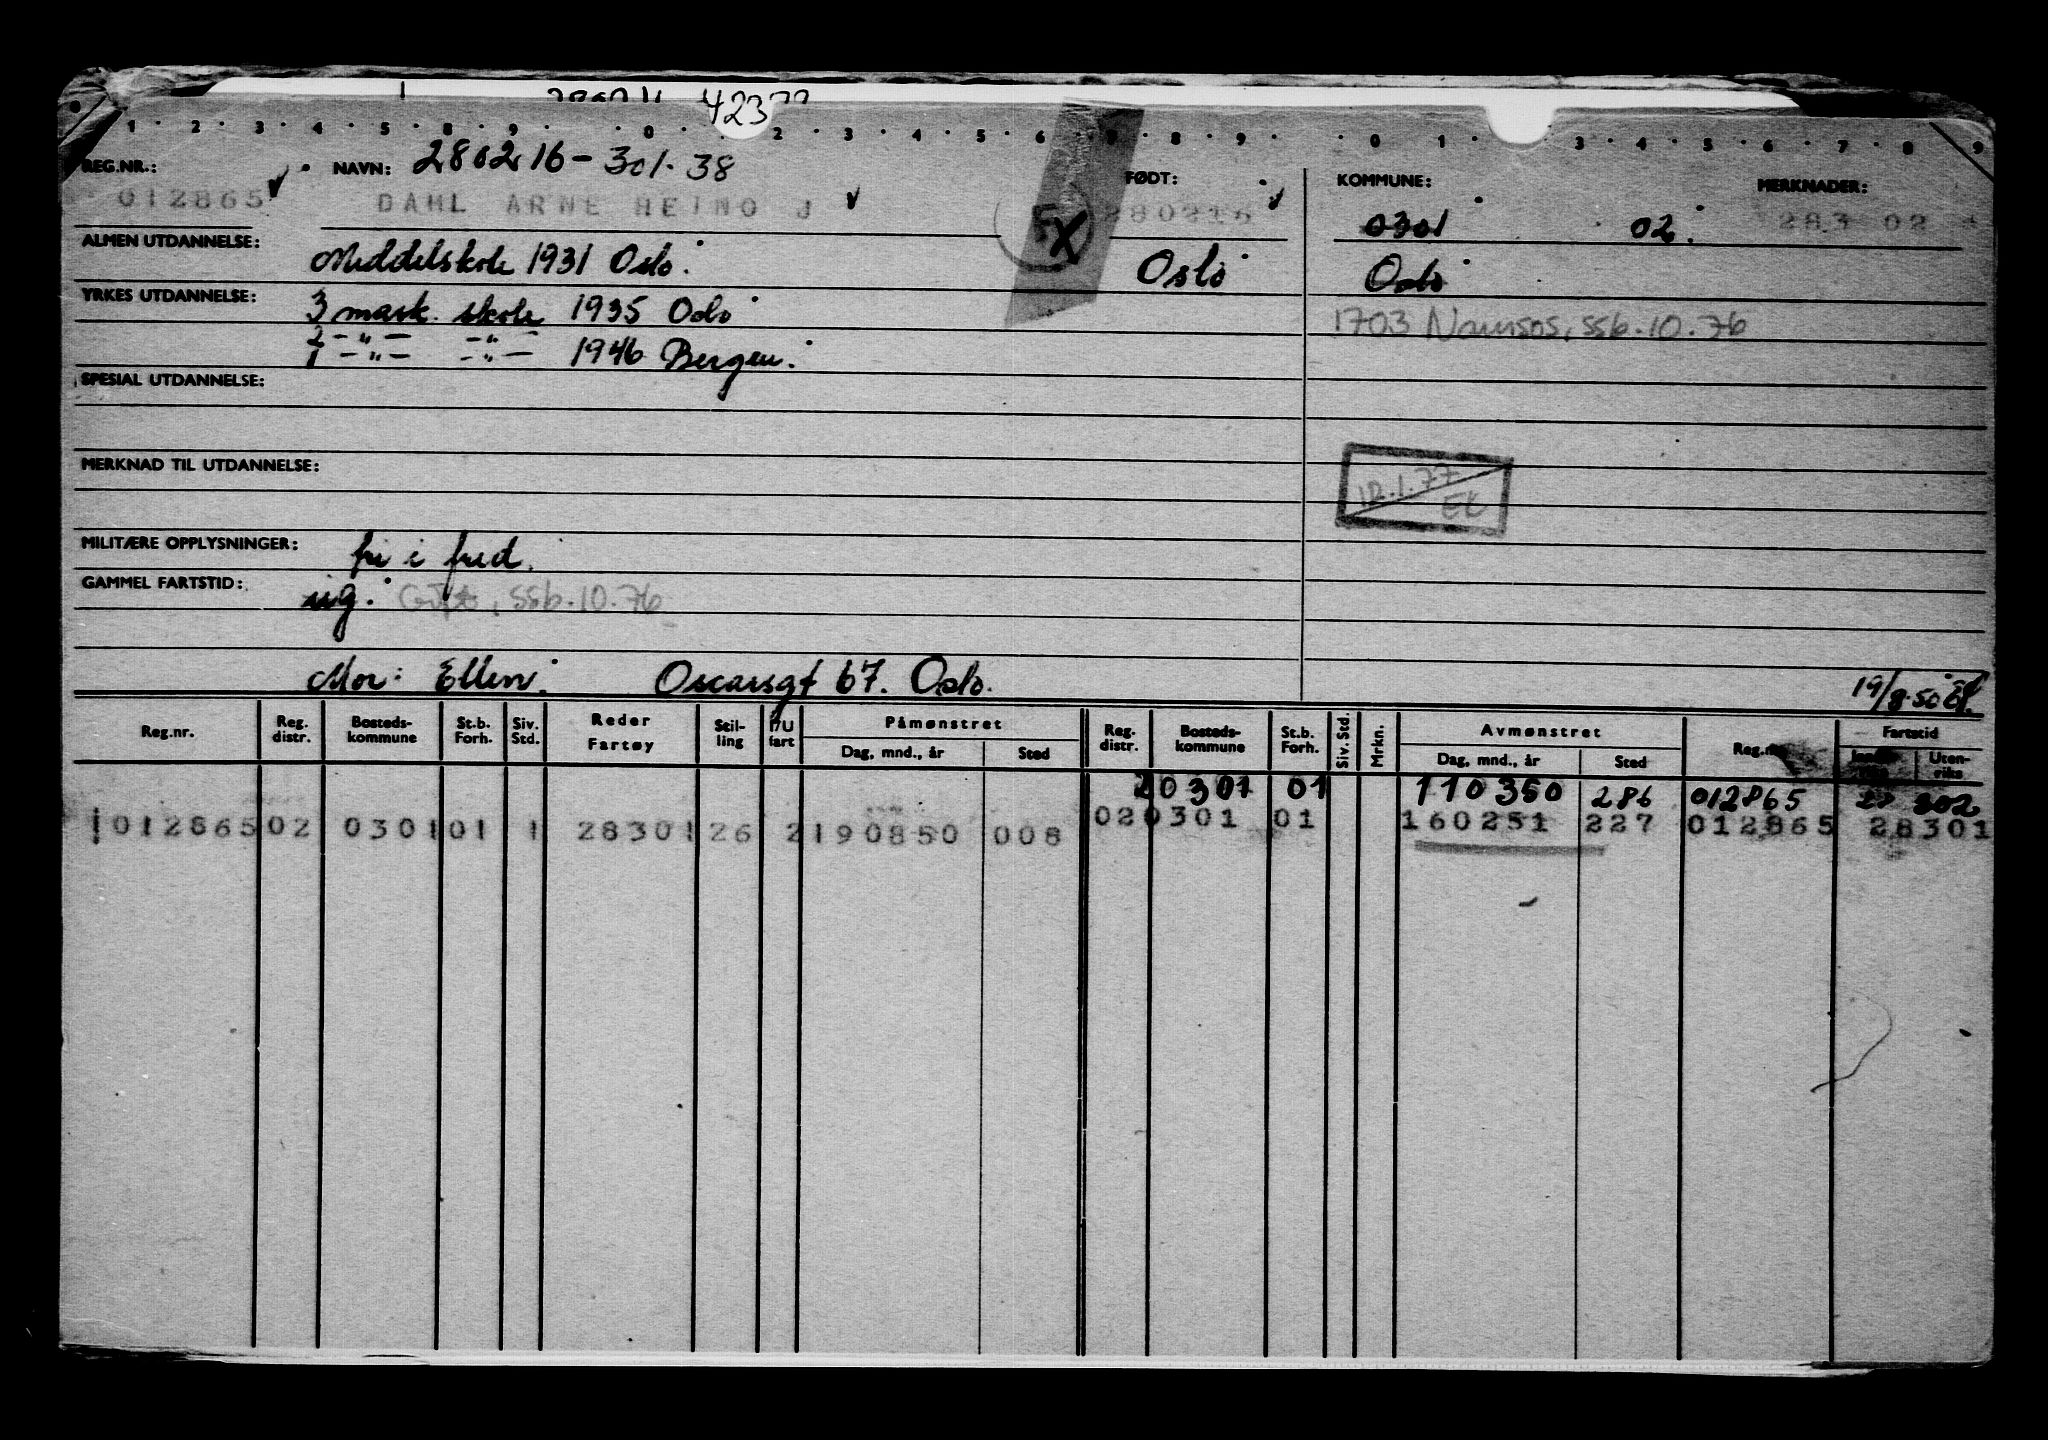 42377
1 · 2 · 3 · 4 · 5 · 8 · 9 · · 0 · · 2 · 3 · 4 · 5 · 6 · 8 · 9 · · 0 · 1 · 3 · 4 · 5 · 6 · 7 · 8 · 9
REG.NR.: NAVN: 280216 - 301.38 FØDT: KOMMUNE: MERKNADER:
012865 DAHL ARNE HEINO J 280216 0301 02. 283 02
ALMEN UTDANNELSE: Middelskole 1931 Oslo. Oslo Oslo
YRKES UTDANNELSE: 3 mask. skole 1935 Oslo 1703 Namsos, ssb.10.76
2 -"- -"-
1 -"- -"- 1946 Bergen.
SPESIAL UTDANNELSE:
MERKNAD TIL UTDANNELSE:
12.1.77 EL
MILITÆRE OPPLYSNINGER: fri i fred.
GAMMEL FARTSTID: uig. Gift, ssb.10.76
Mor: Ellen. Oscarsgt 67. Oslo. 19/8.50
Reg.nr. Reg. distr. Bosteds-kommune St.b. Forh. Siv. Std. Reder Fartøy Stil-ling I/U fart Påmønstret Dag, mnd., år Sted Reg. distr. Bosteds-kommune St.b. Forh. Siv. Std. Mrkn. Avmønstret Dag, mnd., år Sted Reg.nr. Fartstid Uten-riks
20301 01 110350 286 012865 302
1012865 02 0301 01 1 28301 26 2 190850 008 02 0301 01 160251 227 012865 28301